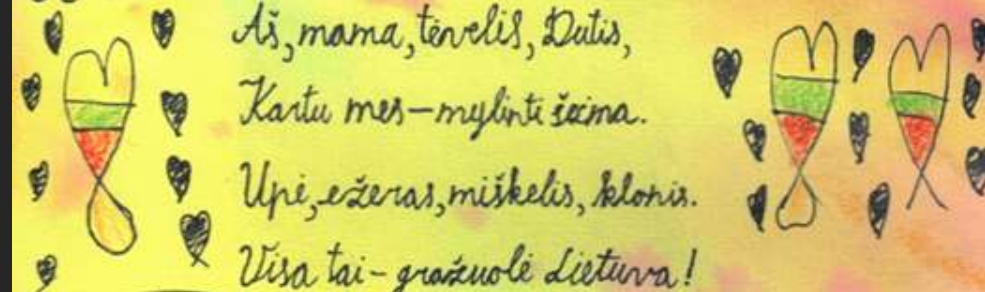 Aš, mama, tėvelis, Dutis,
Kartu mes – mylinti šeima.
Upė, ežeras, miškelis, klonis.
Visa tai – gražuolė Lietuva!